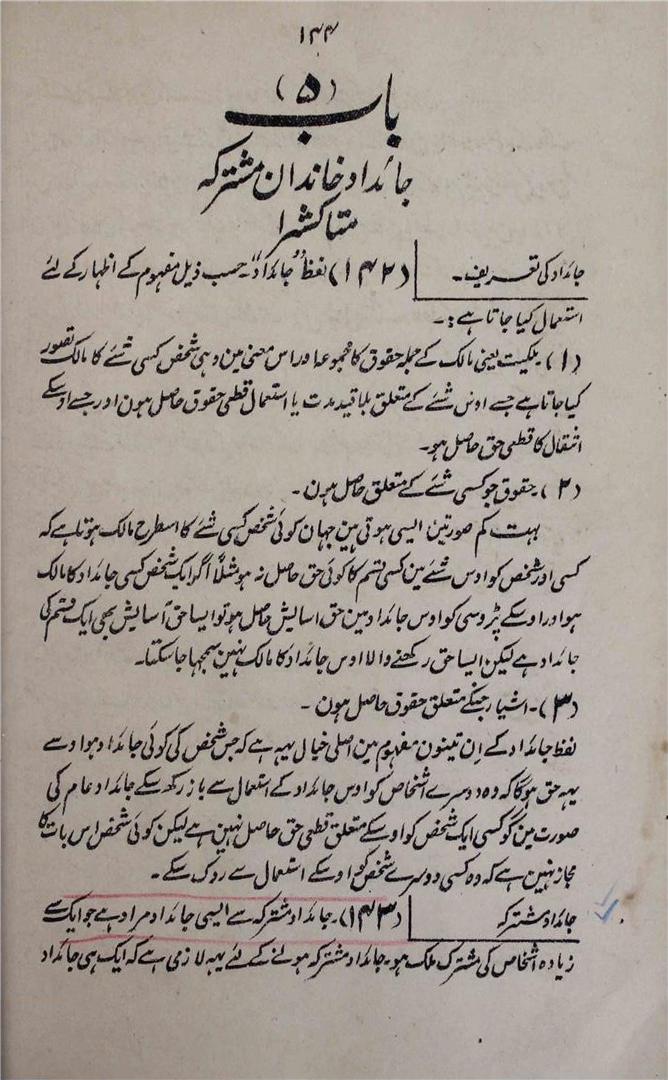 ۱۴۴
باب (۵)
جائداد خاندان مشترکہ
متاکشرا
جائداد کی تعریف۔ (۱۴۲) لفظ "جائداد"۔ حسب ذیل مفہوم کے اظہار کے لئے
استعمال کیا جاتا ہے :۔
(۱) ملکیت یعنی مالک کے جملہ حقوق کا مجموعہ اور اس معنی مین وہی شخص کسی شئے کا مالک تصور
کیا جاتا ہے جسے اوس شئے کے متعلق بلا قید مدت یا استعمال قطعی حقوق حاصل ہون اور جسے اوسکے
انتقال کا قطعی حق حاصل ہو۔
(۲)۔ حقوق جو کسی شئے کے متعلق حاصل ہون۔
بہت کم صورتین ایسی ہوتی ہین جہان کوئی شخص کسی شئے کا اسطرح مالک ہوتا ہے کہ
کسی اور شخص کو اوس شئے مین کسی قسم کا کوئی حق حاصل نہ ہو مثلاً اگر ایک شخص کسی جائداد کا مالک
ہو اور اوسکے پڑوسی کو اوس جائداد مین حق اسایش حاصل ہو تو ایسا حق آسایش بھی ایک قسم کی
جائداد ہے لیکن ایسا حق رکھنے والا اوس جائداد کا مالک نہین سمجہا جا سکتا۔
(۳)۔ اشیار جنکے متعلق حقوق حاصل ہون۔
لفظ جائداد کے ان تینون مفہوم مین اصلی خیال یہہ ہے کہ جس شخص کی کوئی جائداد ہو اوسے
یہہ حق ہوگا کہ وہ دوسرے اشخاص کو اوس جائداد کے استعمال سے باز رکھ سکے جائداد عام کی
صورت مین گو کسی ایک شخص کو اوسکے متعلق قطعی حق حاصل نہین ہے لیکن کوئی شخص اس بات کا
مجاز نہین ہے کہ وہ کسی دوسرے شخص کو اوسکے استعمال سے روک سکے۔
جائداد مشترکہ (۱۴۳)۔ جائداد مشترکہ سے ایسی جائداد مراد ہے جو ایک سے
زیادہ اشخاص کی مشترک ملک ہو۔ جائداد مشترکہ ہونے کے لئے یہہ لازمی ہے کہ ایک ہی جائداد